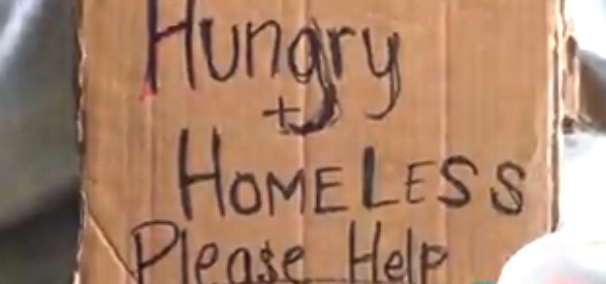 Hungry
+
HOMELESS
Please Help